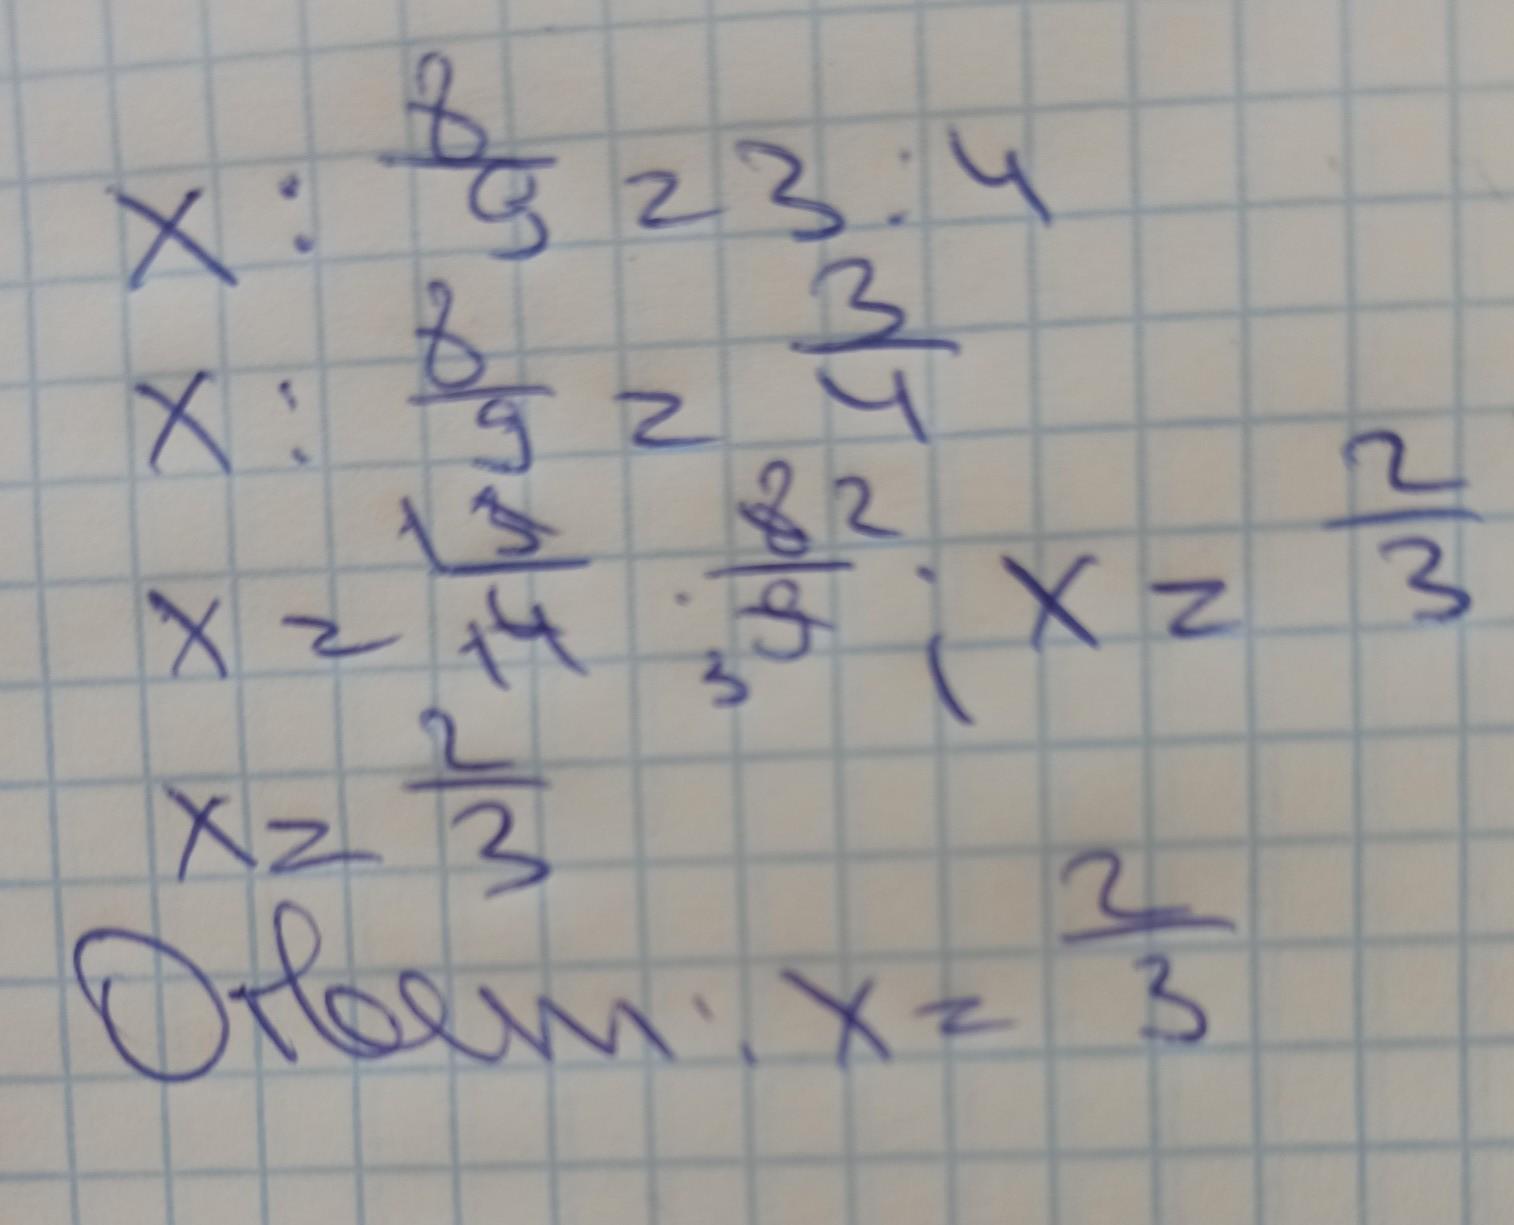 x : 8/9 = 3 : 4
x : 8/9 = 3/4
x = 1 3/1 4 · 8 2/3 9 ; x = 2/3
x = 2/3
Ответ: x = 2/3